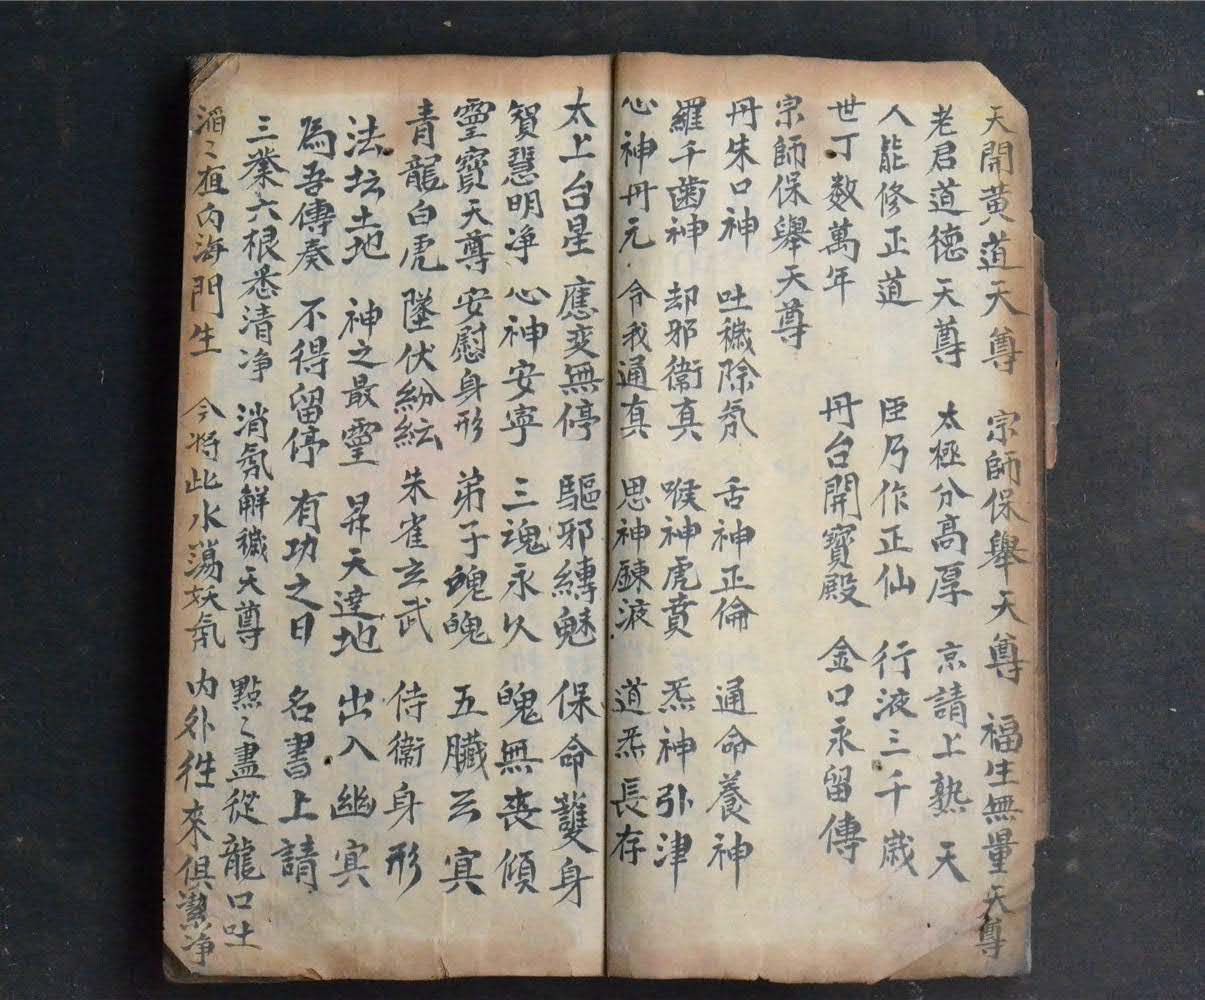 天開黃道天尊 宗師保舉天尊 福生無量天尊
老君道德天尊 太極分高厚 京請上熟天
人能修正道 乃作正仙 行液三千歳
世丁数萬年 丹台開寶殿 金口永留傳
宗師保舉天尊
丹朱口神 吐穢除氛 舌神正倫 通命養神
羅千齒神 却邪衞真 喉神虎賁 炁神引津
心神丹元 令我通真 思神錬液 道炁長存
太上台星 應变無停 驅邪縳魅 保命護身
智慧明净 心神安寧 三魂永久 魄無丧傾
靈寶天尊 安慰身形 弟子魄魄 五臟玄冥
青龍白虎 墜伏紛紜 朱雀玄武 侍衞身形
法坛土地 神之最靈 昇天達地 出入幽冥
為吾傳奏 不得留停 有功之日 名書上請
三業六根悉清净 消氛解穢天尊 點〻盡從龍口吐
滔〻内海門生 今将此水蕩妖氛 内外徃來俱潔净